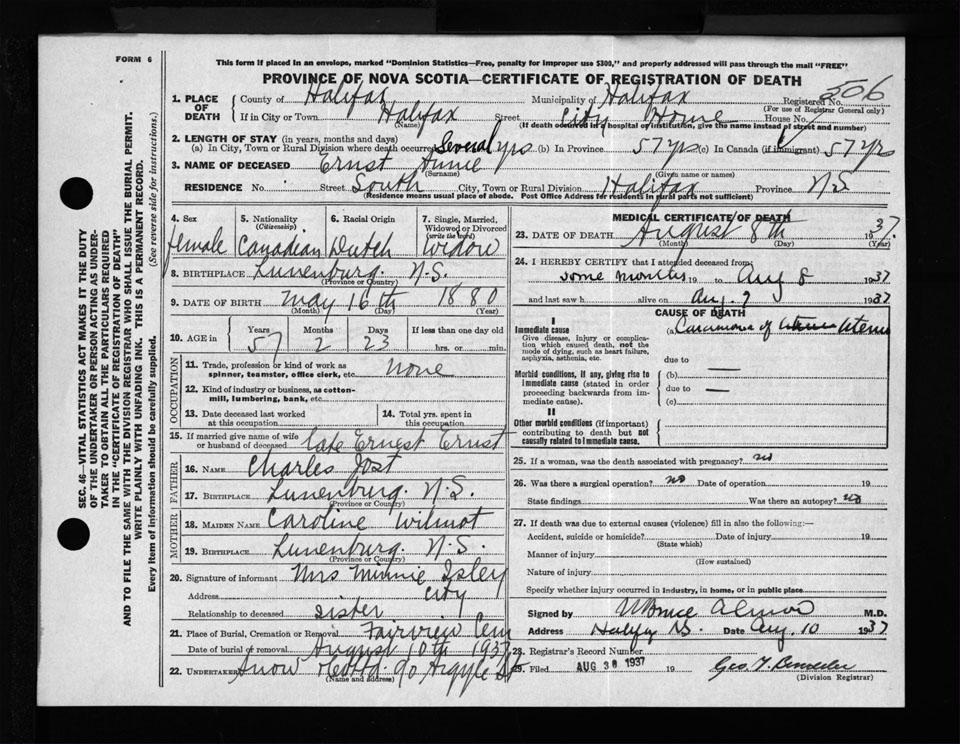 FORM 6
This form if placed in an envelope, marked "Dominion Statistics—Free, penalty for improper use $300," and properly addressed will pass through the mail "FREE"
PROVINCE OF NOVA SCOTIA—CERTIFICATE OF REGISTRATION OF DEATH
506
1. PLACE OF DEATH County of Halifax Municipality of Halifax Registered No.
(For use of Registrar General only)
If in City or Town Halifax Street City Home House No.
(Name) (If death occurred in a hospital or institution, give the name instead of street and number)
2. LENGTH OF STAY (in years, months and days)
(a) In City, Town or Rural Division where death occurred Several yrs (b) In Province 57 yrs (c) In Canada (if immigrant) 57 yrs
3. NAME OF DECEASED Ernst Annie
(Surname) (Given name or names)
RESIDENCE No. Street South City, Town or Rural Division Halifax Province N.S
(Residence means usual place of abode. Post Office Address for residents in rural parts not sufficient.)
4. Sex female
5. Nationality (Citizenship) Canadian
6. Racial Origin Dutch
7. Single, Married, Widowed or Divorced (write the word) Widow
8. BIRTHPLACE Lunenburg. N.S.
(Province or Country)
9. DATE OF BIRTH May 16th 1880
(Month) (Day)
10. AGE in Years 57 Months 2 Days 23 If less than one day old hrs. or min.
OCCUPATION
11. Trade, profession or kind of work as spinner, teamster, office clerk, etc. none
12. Kind of industry or business, as cotton-mill, lumbering, bank, etc.
13. Date deceased last worked at this occupation
14. Total yrs. spent in this occupation
15. If married give name of wife or husband of deceased late Ernest Ernst
FATHER
16. NAME Charles Jost
17. BIRTHPLACE Lunenburg. N.S.
(Province or Country)
MOTHER
18. MAIDEN NAME Caroline Wilmot
19. BIRTHPLACE Lunenburg. N.S.
(Province or Country)
20. Signature of informant Mrs Minnie Isley
Address City
Relationship to deceased sister
21. Place of Burial, Cremation or Removal Fairview Cem
Date of burial or removal August 10th 1937
22. UNDERTAKER Snow & Co Ltd. 90 Argyle St
(Name and address)
MEDICAL CERTIFICATE OF DEATH
23. DATE OF DEATH August 8th 1937.
(Month) (Day) (Year)
24. I HEREBY CERTIFY that I attended deceased from
some months 19 to Aug 8 1937
and last saw h alive on Aug. 7 1937
CAUSE OF DEATH
I
Immediate cause
Give disease, injury or complication which caused death, not the mode of dying, such as heart failure, asphyxia, asthenia, etc.
(a) Carcinoma of Uterus
due to
Morbid conditions, if any, giving rise to immediate cause (stated in order proceeding backwards from immediate cause).
(b) —
due to —
(c)
II
Other morbid conditions (if important) contributing to death but not causally related to immediate cause.
25. If a woman, was the death associated with pregnancy? no
26. Was there a surgical operation? no Date of operation 19
State findings Was there an autopsy? no
27. If death was due to external causes (violence) fill in also the following:—
Accident, suicide or homicide? Date of injury 19
(State which)
Manner of injury
(How sustained)
Nature of injury
Specify whether injury occurred in industry, in home, or in public place
Signed by W Bruce Almon M.D.
Address Halifax NS. Date Aug. 10 1937
28. Registrar's Record Number
29. Filed AUG 30 1937 19
(Division Registrar)
SEC. 46—VITAL STATISTICS ACT MAKES IT THE DUTY
OF THE UNDERTAKER OR PERSON ACTING AS UNDER-
TAKER TO OBTAIN ALL THE PARTICULARS REQUIRED
IN THE "CERTIFICATE OF REGISTRATION OF DEATH"
AND TO FILE THE SAME WITH THE DIVISION REGISTRAR WHO SHALL ISSUE THE BURIAL PERMIT.
WRITE PLAINLY WITH UNFADING INK. THIS IS A PERMANENT RECORD.
Every item of information should be carefully supplied. (See reverse side for instructions.)